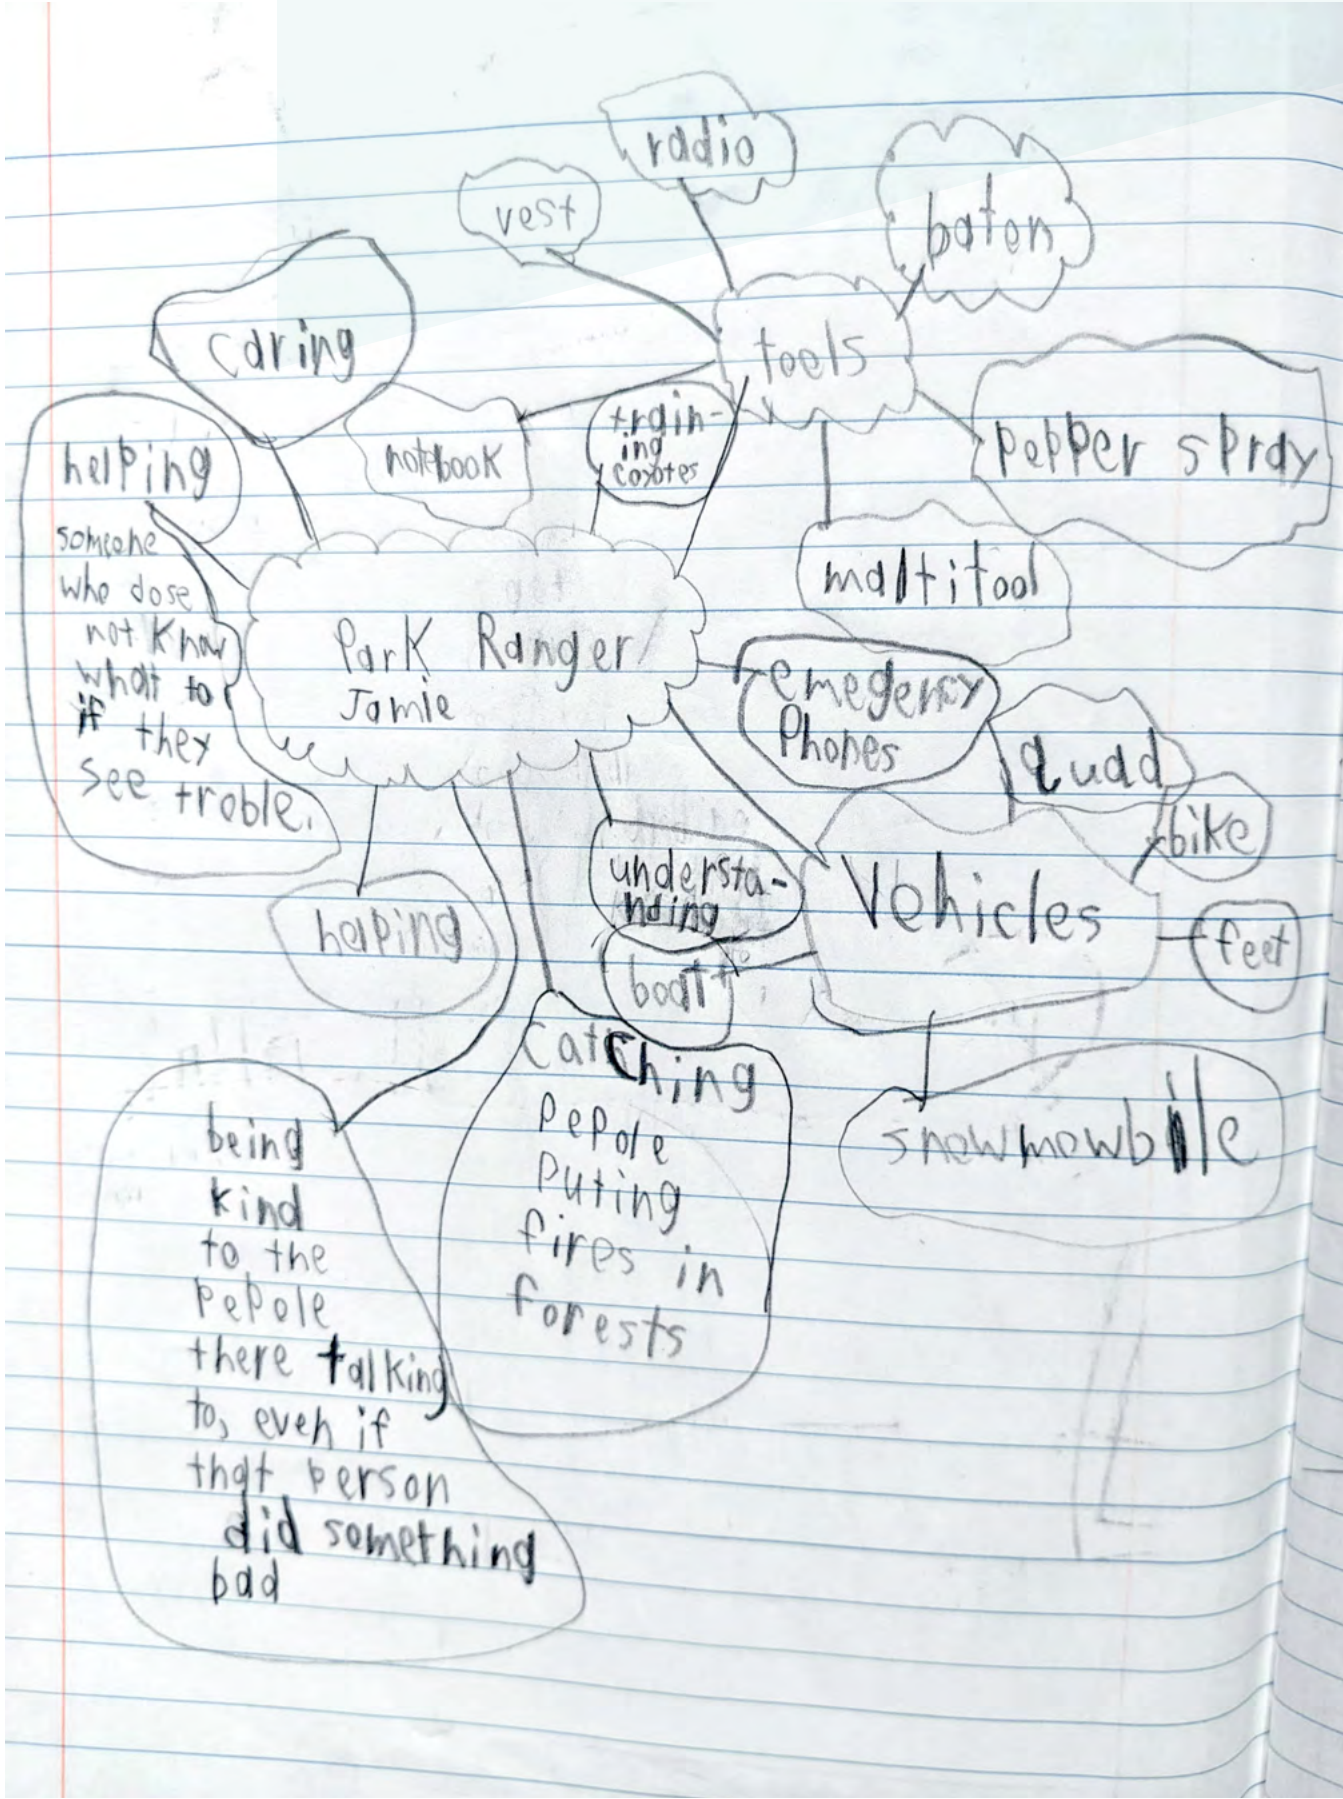 radio
vest
baten
caring
tools
train-
ing
coyotes
notebook
pepper spray
helping
someone
who dose
not know
what to
if they
see troble.
maltitool
Park Ranger
Jamie
emegency
Phones
quad
bike
understa-
nding
Vehicles
feet
helping
boat
catching
pepole
puting
fires in
forests
snowmowbile
being
kind
to the
pepole
there talking
to, even if
that person
did something
bad